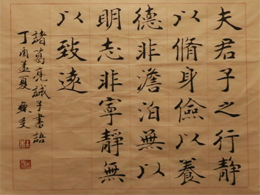 夫君子之行靜
以脩身儉以養
德非澹泊無以
明志非寧靜無
以致遠
諸葛亮誡子書語
丁酉孟夏